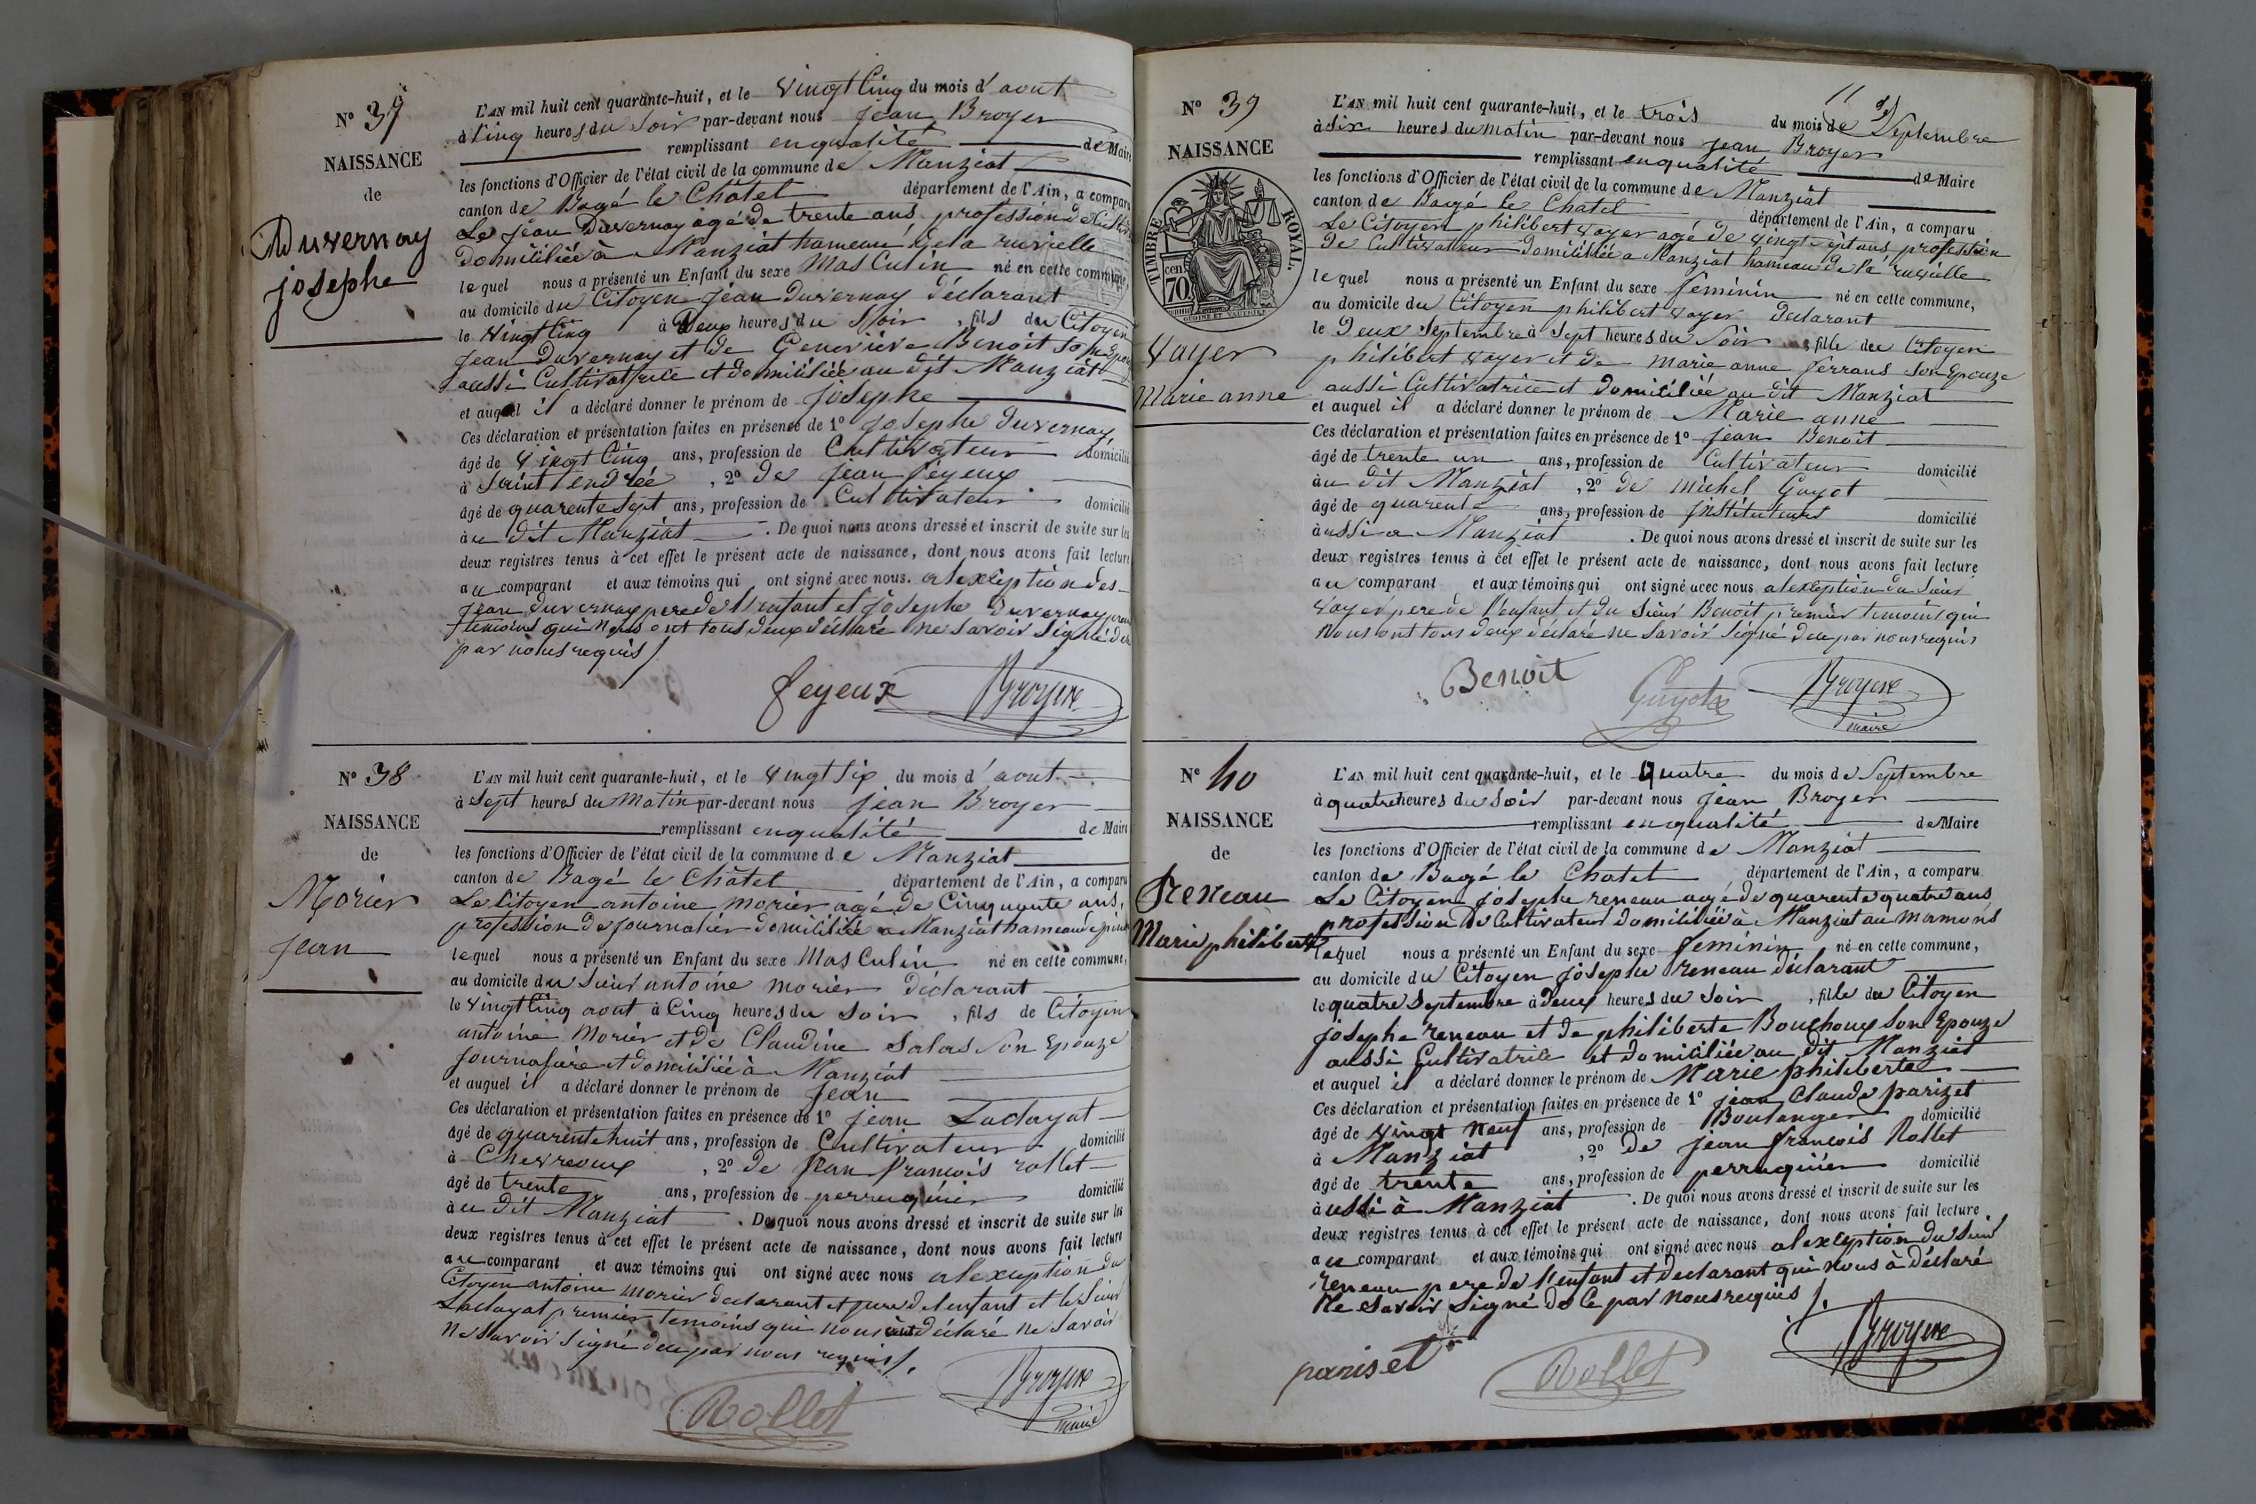 N° 37
NAISSANCE
de
Duvernay
josephe
L'AN mil huit cent quarante-huit, et le vingt Cinq du mois d'aout
à Cinq heures du Soir par-devant nous jean Broyer
remplissant enqualité de Maire
les fonctions d'Officier de l'état civil de la commune de Manziat
canton de Bagé le Châtel département de l'Ain, a comparu
Le jean Duvernay agé de trente ans profession de
domiciliée à Manziat hameau de la
lequel nous a présenté un Enfant du sexe Masculin né en cette commune,
au domicile du Citoyen jean Duvernay déclarant
le vingt Cinq à Deux heures du Soir, fils du Citoyen
jean Duvernay et de Genevieve Benoit Son Epouze
aussi Cultivatrice et domiciliée au dit Manziat
et auquel il a déclaré donner le prénom de josephe
Ces déclaration et présentation faites en présence de 1° josephe Duvernay
âgé de vingt Cinq ans, profession de Cultivateur domicilié
à Saint, 2° de jean feyeux
âgé de quarente sept ans, profession de Cultivateur domicilié
àu dit Manziat. De quoi nous avons dressé et inscrit de suite sur les
deux registres tenus à cet effet le présent acte de naissance, dont nous avons fait lecture
au comparant et aux témoins qui ont signé avec nous. alexception des
jean duvernay pere de l'enfant et josephe duvernay
temoins qui nous ont tous deux déclaré ne savoir signé de
par nous requis /
feyeux Broyer
N° 38
NAISSANCE
de
Morier
jean
L'AN mil huit cent quarante-huit, et le vingt six du mois d'aout
à Sept heures du Matin par-devant nous jean Broyer
remplissant enqualité de Maire
les fonctions d'Officier de l'état civil de la commune de Manziat
canton de Bagé le Châtel département de l'Ain, a comparu
Le Citoyen antoine morier agé de Cinquente ans,
profession de journalier domiciliée a Manziat hameau
lequel nous a présenté un Enfant du sexe Masculin né en cette commune,
au domicile du Sieur antoine morier déclarant
le vingt Cinq aout à Cinq heures du Soir, fils de Citoyen
antoine Morier et de Claudine Salas Son Epouze
journaliere et domiciliée à Manziat
et auquel il a déclaré donner le prénom de jean
Ces déclaration et présentation faites en présence de 1° jean Laclayat
âgé de quarente huit ans, profession de Cultivateur domicilié
à Chevroux, 2° de jean françois rollet
âgé de trente ans, profession de perruquier domicilié
àu dit Manziat. De quoi nous avons dressé et inscrit de suite sur les
deux registres tenus à cet effet le présent acte de naissance, dont nous avons fait lecture
au comparant et aux témoins qui ont signé avec nous alexception du
Citoyen antoine morier declarant et pere de l'enfant et le Sieur
Laclayat premier temoins qui nous ont déclaré ne savoir
ne savoir signé de ce par nous requis /.
Rollet Broyer
maire
11
N° 39
NAISSANCE
TIMBRE ROYAL.
70 cen.
vayer
Marie anne
L'AN mil huit cent quarante-huit, et le trois du mois de Septembre
à six heures du matin par-devant nous jean Broyer
remplissant enqualité de Maire
les fonctions d'Officier de l'état civil de la commune de Manziat
canton de Bagé le Chatel département de l'Ain, a comparu
Le Citoyen philibert vayer agé de vingt sept ans profession
de Cultivateur domiciliée a Manziat hameau de la
lequel nous a présenté un Enfant du sexe feminin né en cette commune,
au domicile du Citoyen philibert vayer declarant
le Deux Septembre à Sept heures du Soir, fille du Citoyen
philibert vayer et de marie anne ferrans Son Epouze
aussi Cultivatrice et domiciliée au dit Manziat
et auquel il a déclaré donner le prénom de Marie anne
Ces déclaration et présentation faites en présence de 1° jean Benoit
âgé de trente un ans, profession de Cultivateur domicilié
àu dit Manziat, 2° de michel Guyot
âgé de quarente ans, profession de jnstituteurs domicilié
àussi a Manziat. De quoi nous avons dressé et inscrit de suite sur les
deux registres tenus à cet effet le présent acte de naissance, dont nous avons fait lecture
au comparant et aux témoins qui ont signé avec nous alexception du Sieur
vayer pere de l'enfant et du sieur Benoit premier temoins qui
nous ont tous deux déclaré ne savoir signé de ce par nous requis
Benoit Guyot Broyer
maire
N° 40
NAISSANCE
de
reneau
Marie philiberte
L'AN mil huit cent quarante-huit, et le quatre du mois de Septembre
à quatre heures du Soir par-devant nous jean Broyer
remplissant enqualité de Maire
les fonctions d'Officier de l'état civil de la commune de Manziat
canton de Bagé le Chatel département de l'Ain, a comparu
Le Citoyen josephe reneau agé de quarente quatre ans
profession de Cultivateur domiciliée à Manziat au mamons
lequel nous a présenté un Enfant du sexe feminin né en cette commune,
au domicile du Citoyen josephe reneau déclarant
le quatre Septembre à Deux heures du Soir, fille du Citoyen
josephe reneau et de philiberte Bouchoux Son Epouze
aussi Cultivatrice et domiciliée au dit Manziat
et auquel il a déclaré donner le prénom de Marie philiberte
Ces déclaration et présentation faites en présence de 1° jean Claude parizet
âgé de vingt neuf ans, profession de Boulanger domicilié
à Manziat, 2° de jean françois Rollet
âgé de trente ans, profession de perruquier domicilié
àussi à Manziat. De quoi nous avons dressé et inscrit de suite sur les
deux registres tenus à cet effet le présent acte de naissance, dont nous avons fait lecture
au comparant et aux témoins qui ont signé avec nous alexception du Sieur
reneau pere de l'enfant et declarant qui nous à déclaré
ne savoir signé de Ce par nous requis /.
pariset Rollet Broyer